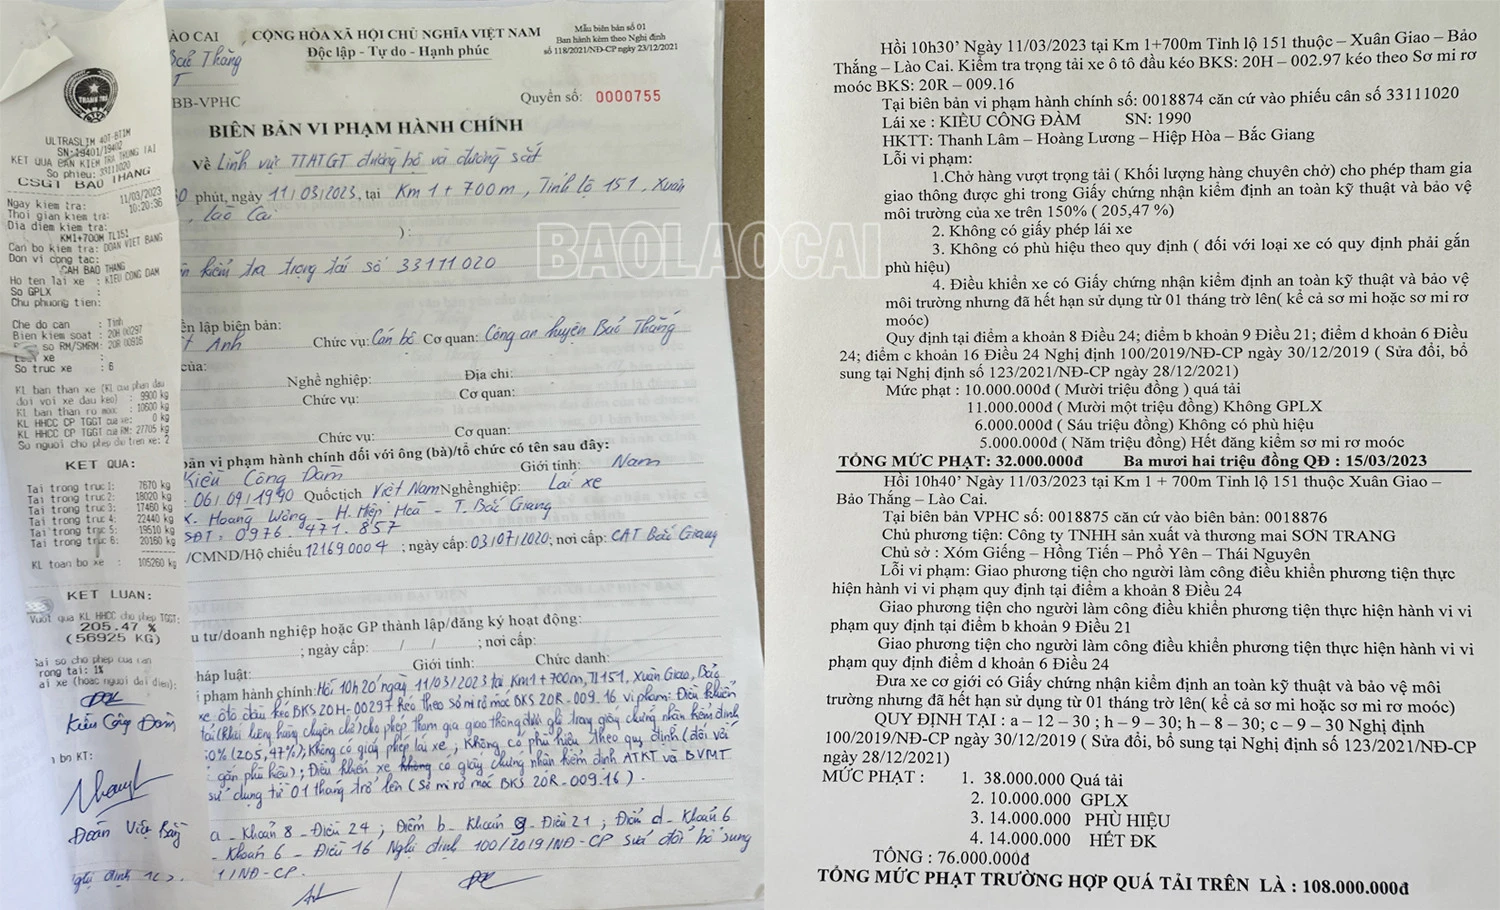 ULTRASLIM 40T-BTIM
SN:19401/19402
KET QUA BAN KIEM TRA TRONG TAI
So phieu: 33111020
CSGT BAO THANG
Ngay kiem tra: 11/03/2023
Thoi gian kiem tra: 10:20:36
Dia diem kiem tra:
KM1+700M TL151
Can bo kiem tra: DOAN VIET BANG
Don vi cong tac:
CAH BAO THANG
Ho ten lai xe : KIEU CONG DAM
So GPLX :
Chu phuong tien:
Che do can : Tinh
Bien kiem soat : 20H 00297
so RM/SMRM: 20R 00916
xe :
So truc xe : 6
KL ban than xe (KL cua phan dau
doi voi xe dau keo) : 9900 kg
KL ban than ro mooc : 10600 kg
KL HHCC CP TGGT cua xe: 0 kg
KL HHCC CP TGGT cua RM: 27705 kg
So nguoi cho phep de tren xe: 2
KET QUA:
Tai trong truc 1: 7670 kg
Tai trong truc 2: 18020 kg
Tai trong truc 3: 17460 kg
Tai trong truc 4: 22440 kg
Tai trong truc 5: 19510 kg
Tai trong truc 6: 20160 kg
KL toan bo xe : 105260 kg
KET LUAN:
Vuot qua KL HHCC cho phep TGGT:
205.47 %
(56925 KG)
Sai so cho phep cua can
trong tai: 1%
ai xe (hoac nguoi dai dien):
Kiều Công Đàm
bo KT:
Đoàn Việt Bằng
ÀO CAI CỘNG HÒA XÃ HỘI CHỦ NGHĨA VIỆT NAM
Độc lập - Tự do - Hạnh phúc
Mẫu biên bản số 01
Ban hành kèm theo Nghị định
số 118/2021/NĐ-CP ngày 23/12/2021
Bảo Thắng
BB-VPHC
Quyển số: 0000755
BIÊN BẢN VI PHẠM HÀNH CHÍNH
Về Lĩnh vực TTATGT đường bộ và đường sắt
phút, ngày 11/03/2023, tại Km 1 + 700m, Tỉnh lộ 151, Xuân
, Lào Cai
):
kiểm tra trọng tải số 33111020
BAOLAOCAI
ên lập biên bản:
Anh Chức vụ: Cán bộ Cơ quan: Công an huyện Bảo Thắng
của:
Nghề nghiệp: Địa chỉ:
Chức vụ: Cơ quan:
Chức vụ: Cơ quan:
bản vi phạm hành chính đối với ông (bà)/tổ chức có tên sau đây:
Kiều Công Đàm Giới tính: Nam
06/09/1990 Quốc tịch Việt Nam Nghề nghiệp: Lái xe
X. Hoàng Lương - H. Hiệp Hoà - T. Bắc Giang
SĐT: 0976.471.857
/CMND/Hộ chiếu 121690004 ; ngày cấp: 03/07/2020; nơi cấp: CAT Bắc Giang
u tư/doanh nghiệp hoặc GP thành lập/đăng ký hoạt động:
; ngày cấp: / / ; nơi cấp:
háp luật: Giới tính: Chức danh:
i phạm hành chính: Hồi 10h20 ngày 11/03/2023 tại Km1+700m, TL151, Xuân Giao, Bảo
xe ôtô đầu kéo BKS 20H-00297 kéo theo sơ mi rơ moóc BKS 20R-009.16 vi phạm: Điều khiển
tải (khối lượng hàng chuyên chở) cho phép tham gia giao thông được ghi trong giấy chứng nhận kiểm định
0% (205,47%); Không có giấy phép lái xe; Không có phù hiệu theo quy định (đối với
gắn phù hiệu); Điều khiển xe không có giấy chứng nhận kiểm định ATKT và BVMT
sử dụng từ 01 tháng trở lên (Sơ mi rơ moóc BKS 20R-009.16).
a - Khoản 8 - Điều 24; Điểm b - Khoản 9 - Điều 21; Điểm d - Khoản 6
- Khoản 6 - Điều 16 Nghị định 100/2019/NĐ-CP sửa đổi bổ sung
1/NĐ-CP.
Hồi 10h30’ Ngày 11/03/2023 tại Km 1+700m Tỉnh lộ 151 thuộc – Xuân Giao – Bảo
Thắng – Lào Cai. Kiểm tra trọng tải xe ô tô đầu kéo BKS: 20H – 002.97 kéo theo Sơ mi rơ
moóc BKS: 20R – 009.16
Tại biên bản vi phạm hành chính số: 0018874 căn cứ vào phiếu cân số 33111020
Lái xe : KIỀU CÔNG ĐÀM SN: 1990
HKTT: Thanh Lâm – Hoàng Lương – Hiệp Hòa – Bắc Giang
Lỗi vi phạm:
1.Chở hàng vượt trọng tải ( Khối lượng hàng chuyên chở) cho phép tham gia
giao thông được ghi trong Giấy chứng nhận kiểm định an toàn kỹ thuật và bảo vệ
môi trường của xe trên 150% ( 205,47 %)
2. Không có giấy phép lái xe
3. Không có phù hiệu theo quy định ( đối với loại xe có quy định phải gắn
phù hiệu)
4. Điều khiển xe có Giấy chứng nhận kiểm định an toàn kỹ thuật và bảo vệ
môi trường nhưng đã hết hạn sử dụng từ 01 tháng trờ lên( kể cả sơ mi hoặc sơ mi rơ
moóc)
Quy định tại điểm a khoản 8 Điều 24; điểm b khoản 9 Điều 21; điểm d khoản 6 Điều
24; điểm c khoản 16 Điều 24 Nghị định 100/2019/NĐ-CP ngày 30/12/2019 ( Sửa đổi, bổ
sung tại Nghị định số 123/2021/NĐ-CP ngày 28/12/2021)
Mức phạt : 10.000.000đ ( Mười triệu đồng ) quá tải
11.000.000đ ( Mười một triệu đồng) Không GPLX
6.000.000đ ( Sáu triệu đồng) Không có phù hiệu
5.000.000đ ( Năm triệu đồng) Hết đăng kiểm sơ mi rơ moóc
TỔNG MỨC PHẠT: 32.000.000đ Ba mươi hai triệu đồng QĐ : 15/03/2023
Hồi 10h40’ Ngày 11/03/2023 tại Km 1 + 700m Tỉnh lộ 151 thuộc Xuân Giao –
Bảo Thắng – Lào Cai.
Tại biên bản VPHC số: 0018875 căn cứ vào biên bản: 0018876
Chủ phương tiện: Công ty TNHH sản xuất và thương mai SƠN TRANG
Chủ sở : Xóm Giếng – Hồng Tiến – Phổ Yên – Thái Nguyên
Lỗi vi phạm: Giao phương tiện cho người làm công điều khiển phương tiện thực
hiện hành vi vi phạm quy định tại điểm a khoản 8 Điều 24
Giao phương tiện cho người làm công điều khiển phương tiện thực hiện hành vi vi
phạm quy định tại điểm b khoản 9 Điều 21
Giao phương tiện cho người làm công điều khiển phương tiện thực hiện hành vi vi
phạm quy định điểm d khoản 6 Điều 24
Đưa xe cơ giới có Giấy chứng nhận kiểm định an toàn kỹ thuật và bảo vệ môi
trường nhưng đã hết hạn sử dụng từ 01 tháng trờ lên( kể cả sơ mi hoặc sơ mi rơ moóc)
QUY ĐỊNH TẠI : a – 12 – 30 ; h – 9 – 30; h – 8 – 30; c – 9 – 30 Nghị định
100/2019/NĐ-CP ngày 30/12/2019 ( Sửa đổi, bổ sung tại Nghị định số 123/2021/NĐ-CP
ngày 28/12/2021)
MỨC PHẠT : 1. 38.000.000 Quá tải
2. 10.000.000 GPLX
3. 14.000.000 PHÙ HIỆU
4. 14.000.000 HẾT ĐK
TỔNG : 76.000.000đ
TỔNG MỨC PHẠT TRƯỜNG HỢP QUÁ TẢI TRÊN LÀ : 108.000.000đ